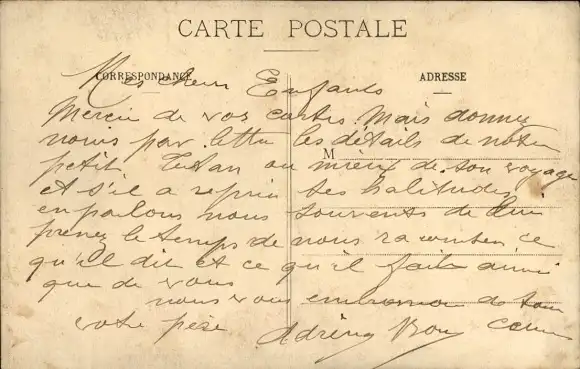 CARTE POSTALE
CORRESPONDANCE
ADRESSE
Mes chers Enfants
Mercie de vos cartes Mais donnez
nous par lettre les détails de notre
M
petit ou mieux de son voyage
et s'il a repris ses habitudes
en parlons nous souvents de lui
prenez le temps de nous raconter ce
qu'il dit et ce qu'il fait ainsi
que de vous
nous vous embrassons de tout
votre père coeur